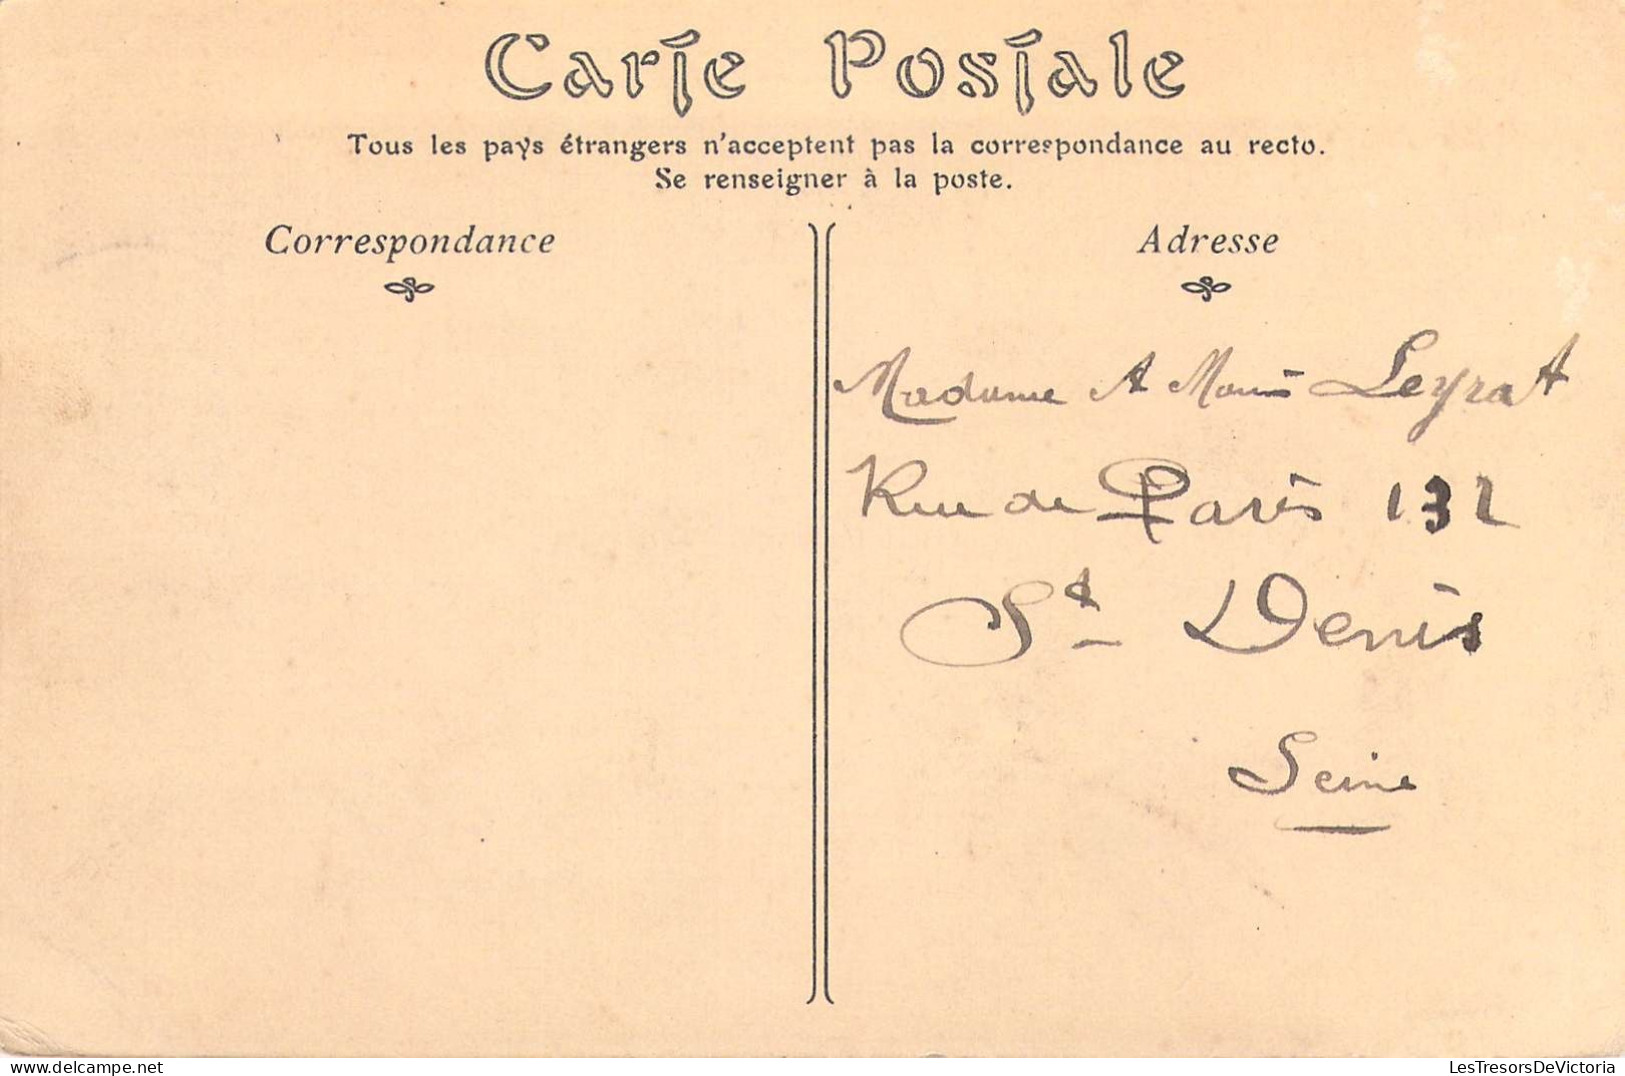 Carte Postale
Tous les pays étrangers n'acceptent pas la correspondance au recto.
Se renseigner à la poste.
Correspondance
Adresse
Madame A Leyrat
Rue de Paris 132
St Denis
Seine
LesTresorsDeVictoria